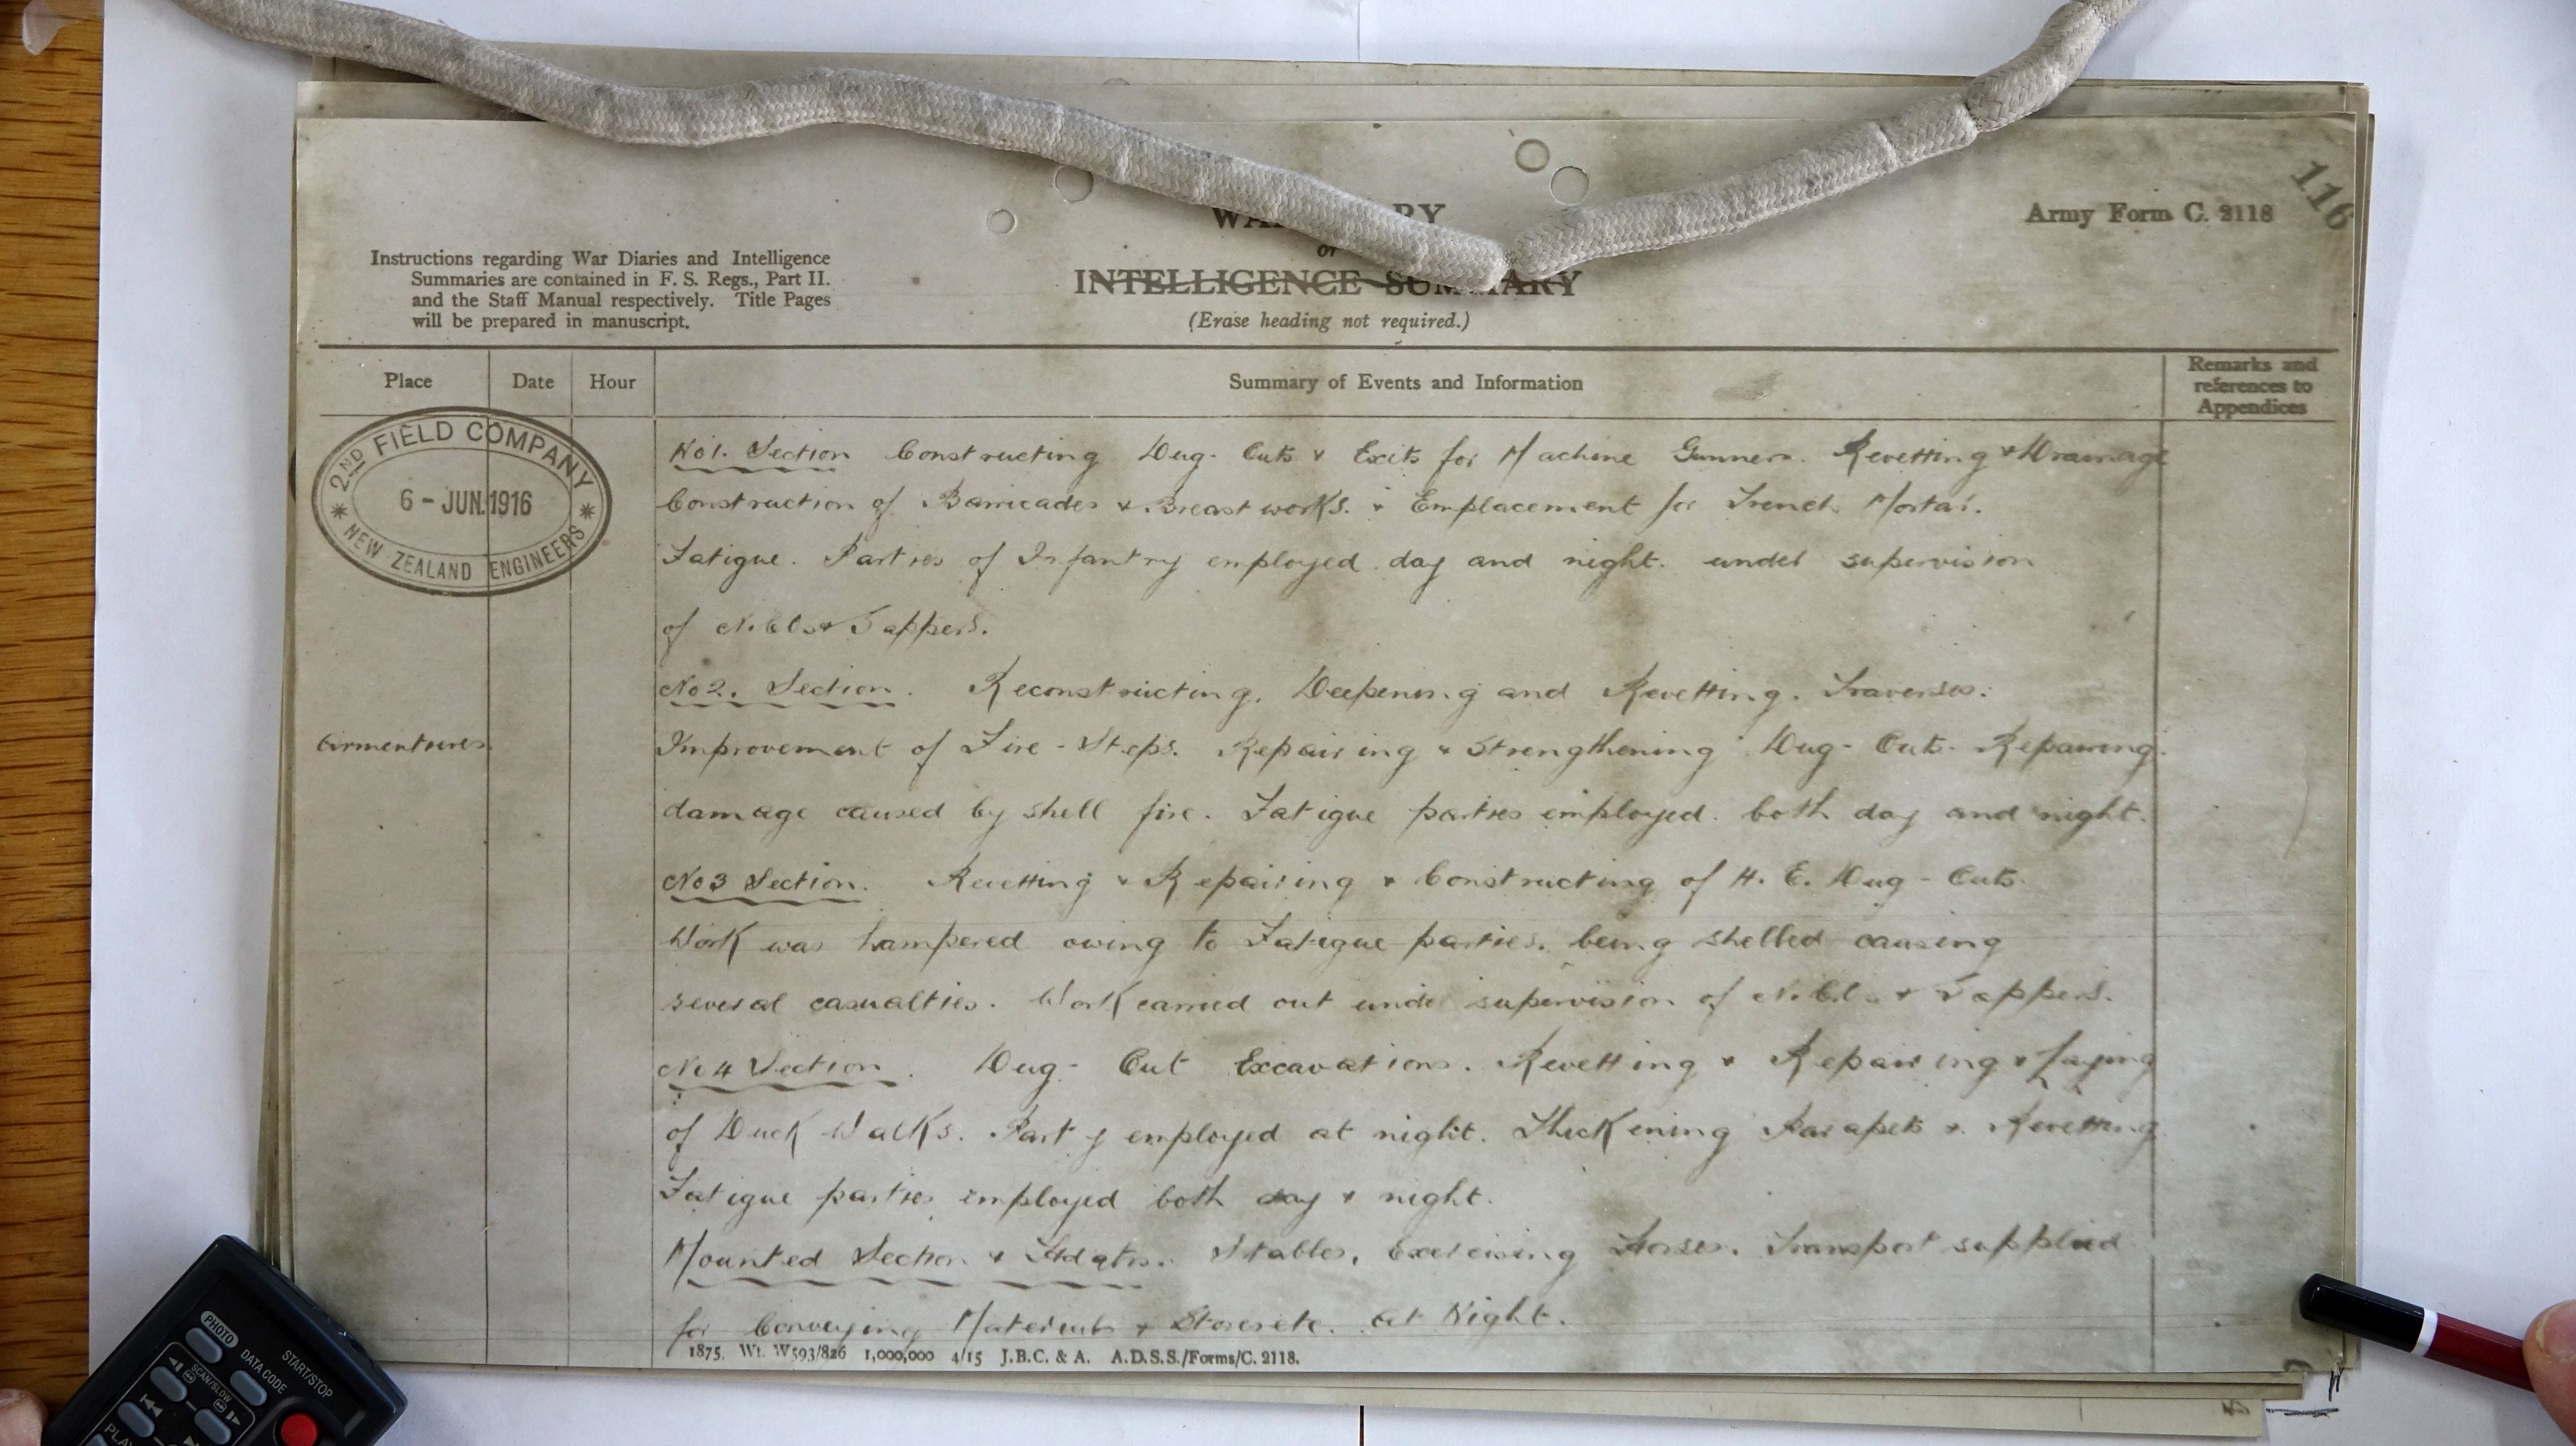 116
Army Form C. 2118
WA RY
or
INTELLIGENCE SUMMARY
(Erase heading not required.)
Instructions regarding War Diaries and Intelligence
Summaries are contained in F. S. Regs., Part II.
and the Staff Manual respectively. Title Pages
will be prepared in manuscript.
Place Date Hour Summary of Events and Information Remarks and
references to
Appendices
2ND FIELD COMPANY
6 - JUN. 1916
NEW ZEALAND ENGINEERS
No1. Section Constructing Dug-Outs & Exits for Machine Gunners. Revetting & Drainage
Construction of Barricades & Breastworks. & Emplacement for Trench Mortar.
Fatigue. Parties of Infantry employed day and night. under supervision
of N.C.Os & Sappers.
No2. Section. Reconstructing, Deepening and Revetting. Traverses.
Armentieres. Improvement of Fire-Steps. Repairing & Strengthening Dug-Outs. Repairing.
damage caused by shell fire. Fatigue parties employed. both day and night.
No3 Section. Revetting & Repairing & Constructing of H. E. Dug-Outs.
Work was hampered owing to Fatigue parties. being shelled causing
several casualties. Work carried out under supervision of N.C.Os & Sappers.
No 4 Section. Dug-Out Excavations. Revetting & Repairing & Laying
of Duck Walks. Party employed at night. Thickening Parapets & Revetting
Fatigue parties employed both day & night.
Mounted Section & Hdqtrs. Stables, Exercising Horses. Transport supplied
for Conveying Materials & Stores etc. at Night.
1875. Wt. W593/826 1,000,000 4/15 J.B.C. & A. A.D.S.S./Forms/C. 2118.
PHOTO
DATA CODE
START/STOP
SCAN/SLOW
PLA